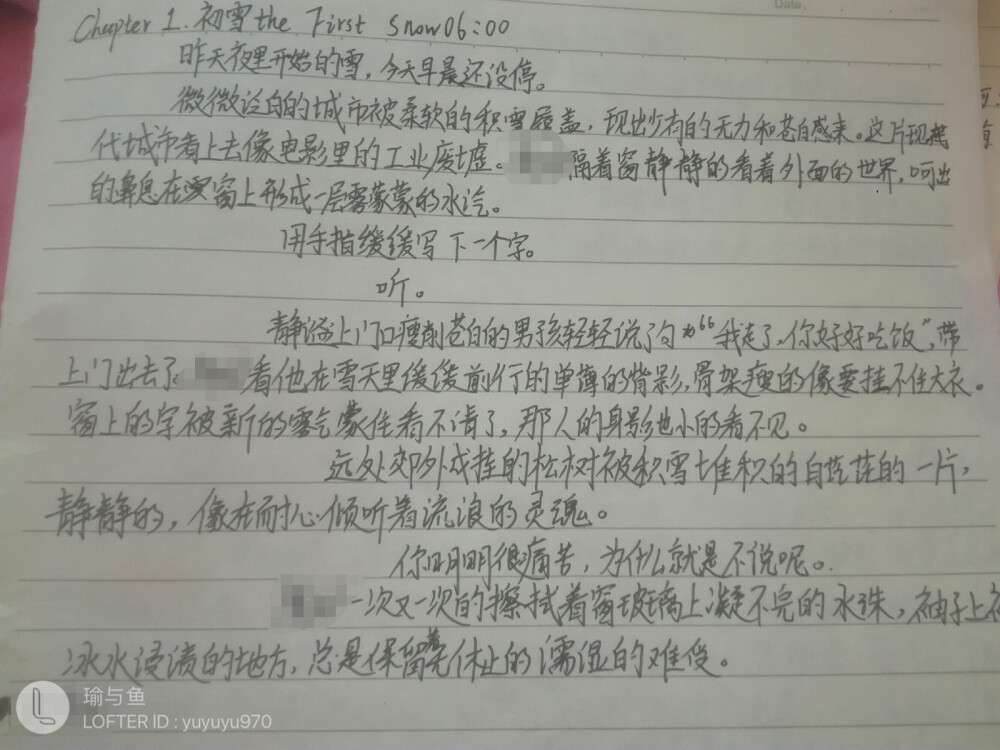 Chapter 1. 初雪the First Snow06:00
昨天夜里开始的雪，今天早晨还没停。
微微泛白的城市被柔软的积雪履盖，现出少有的无力和苍白感来。这片现
代城市看上去像电影里的工业废墟。隔着窗静静的看着外面的世界，呵出
的鼻息在窗上形成一层雾蒙蒙的水汽。
用手指缓缓写下一个字。
听。
静谧上门口瘦削苍白的男孩轻轻说了句“我走了，你好好吃饭”，带
上门出去了看他在雪天里缓缓前行的单薄的背影，骨架瘦的像要挂不住大衣。
窗上的字被新的雾气蒙住看不清了，那人的身影也小的看不见。
远处郊外成挂的松树被积雪堆积的白茫茫的一片，
静静的，像在耐心倾听着流浪的灵魂。
你明明很痛苦，为什么就是不说呢。
一次又一次的擦拭着窗玻璃上凝不完的水珠，袖子上
冰水浸渍的地方，总是保留着休止的濡湿的难受。
瑜与鱼
LOFTER ID : yuyuyu970